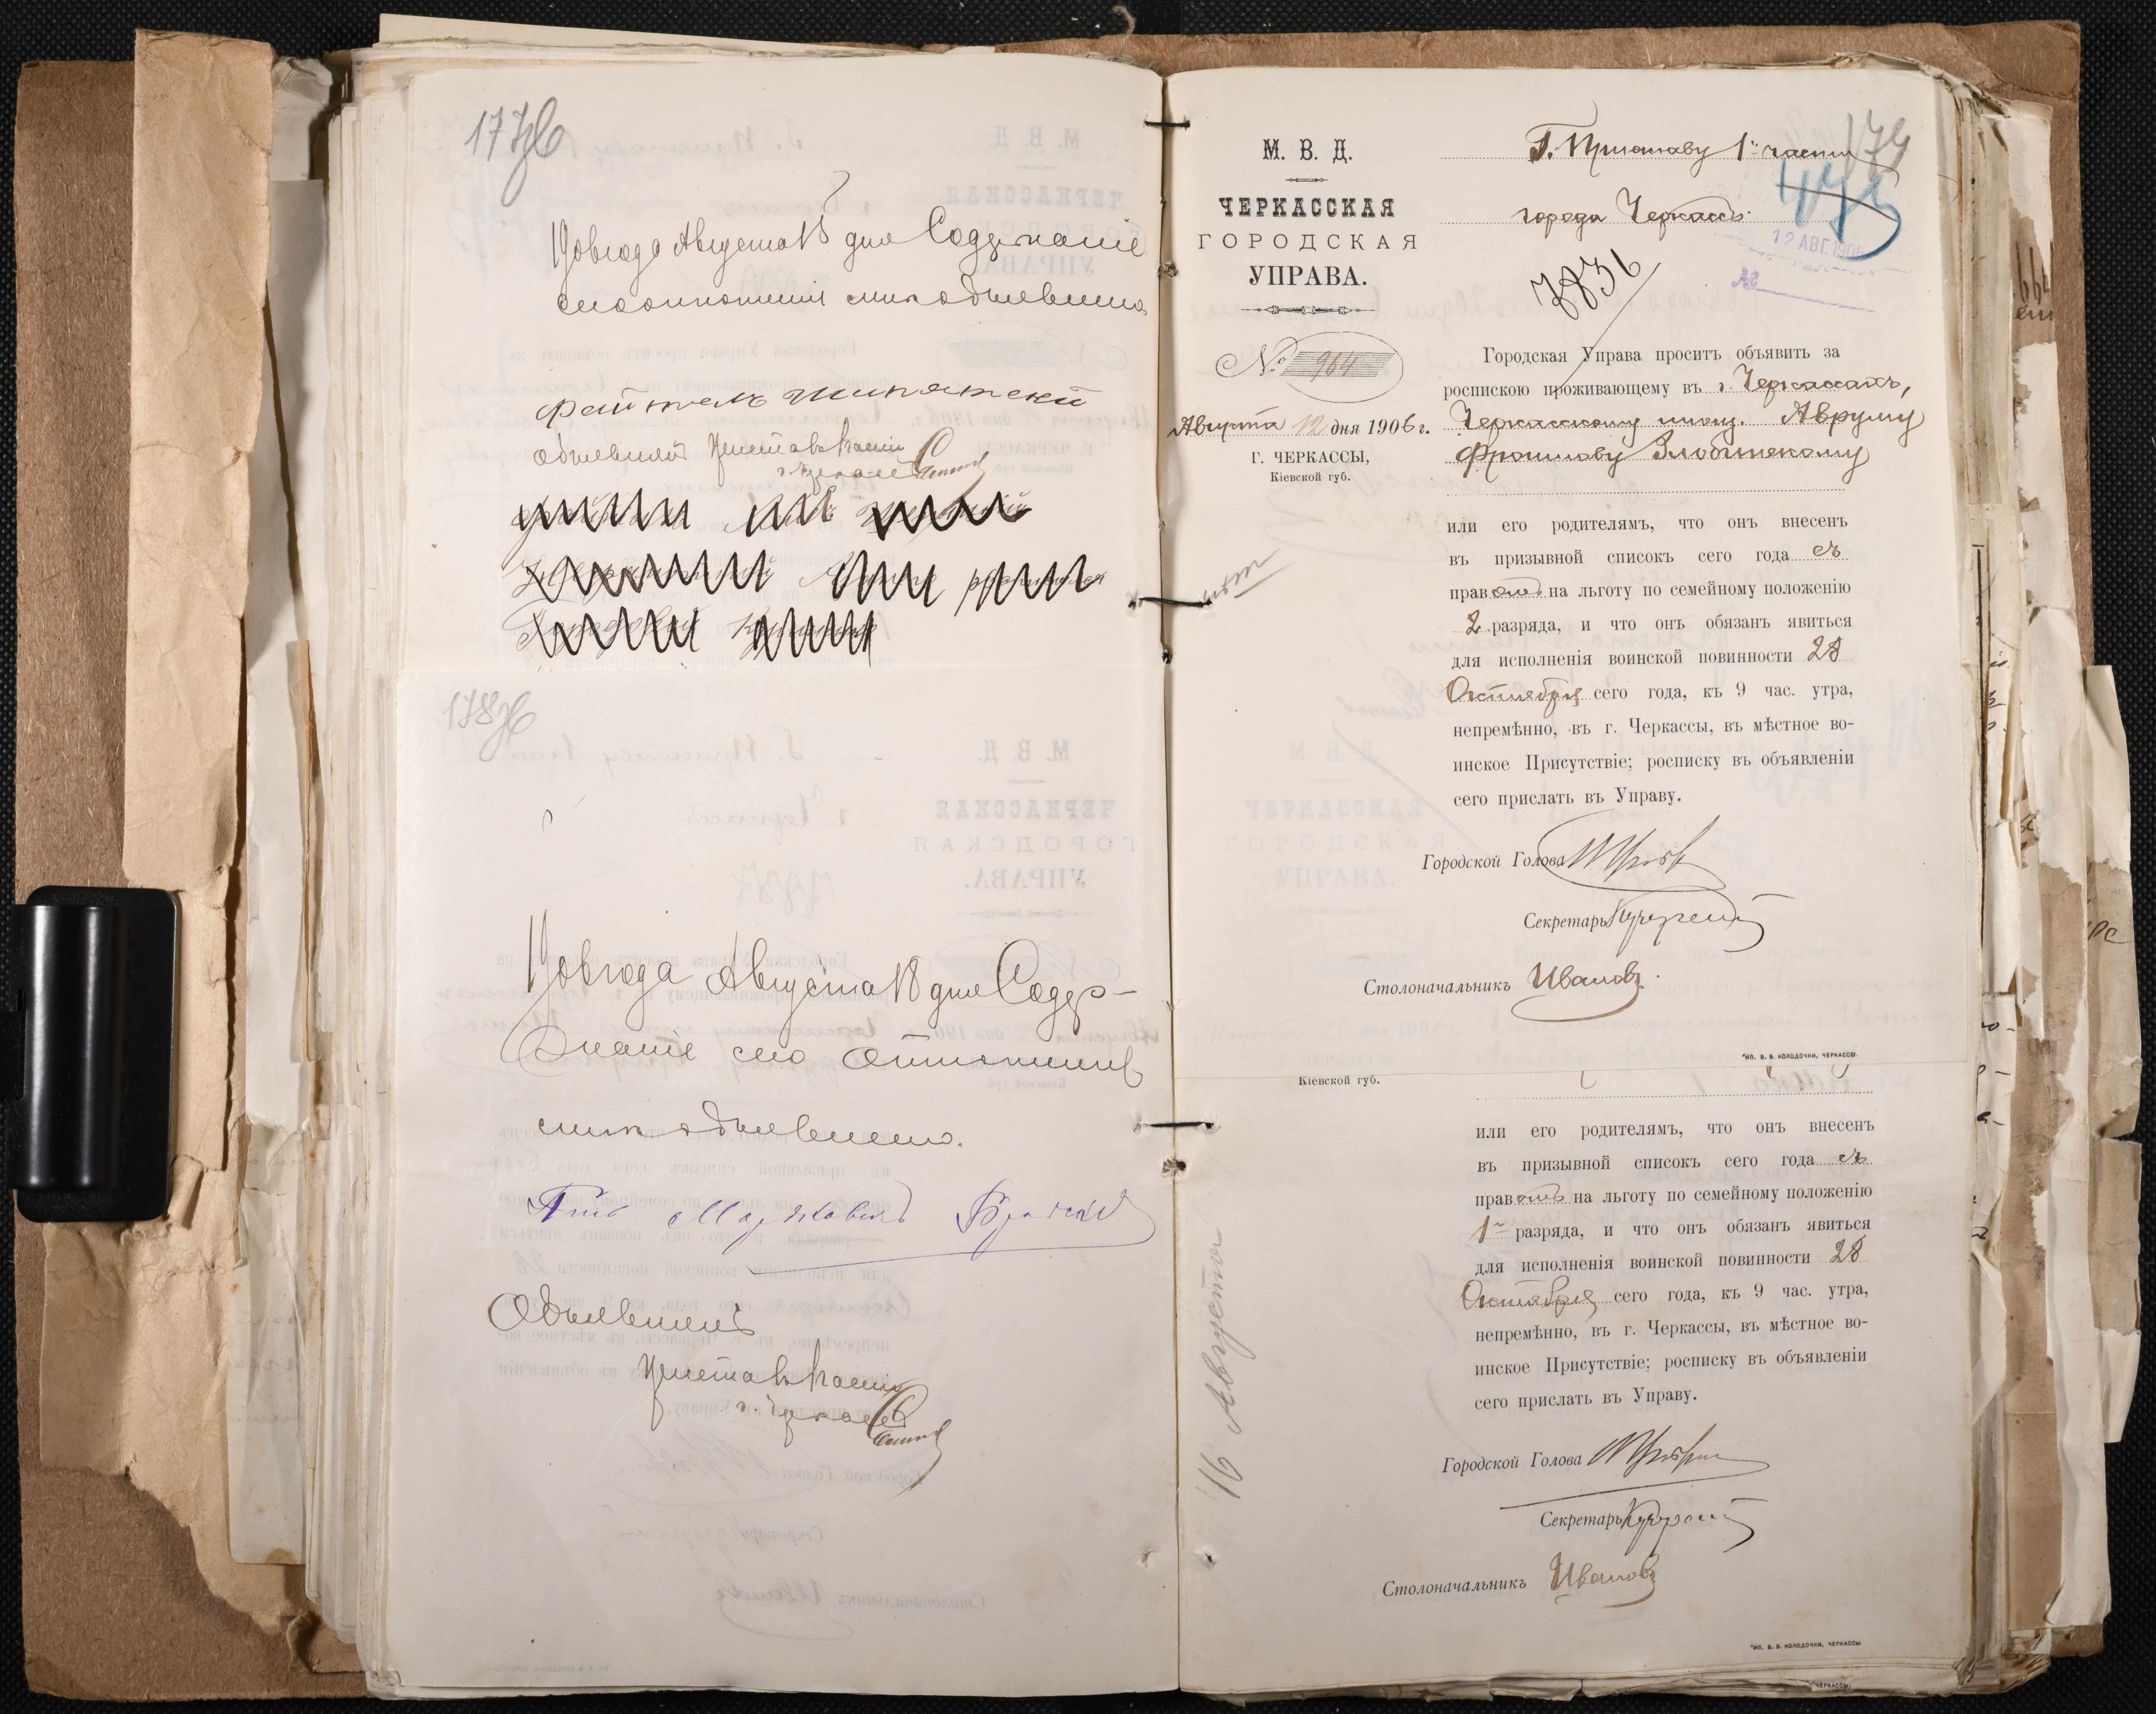 177об
1906 года Августа 18 дня Содержание
сего отношения мне объявлено
Файтель Шпятский
объявил Пристав 1 части
г. Черкасс
178об
1906 года Августа 18 дня Содер-
жание сего отношения
мне объявлено.
Маркович
Объявил
Пристав 1 части
г. Черкасс
М. В. Д.
ЧЕРКАССКАЯ
ГОРОДСКАЯ
УПРАВА.
№ 964
Августа 12 дня 1906 г.
Г. ЧЕРКАССЫ,
Кіевской губ.
179
Г. Приставу 1й части
города Черкассъ.
12 АВГ. 1906
№
7836
Городская Управа проситъ объявить за
роспискою проживающему въ г. Черкассахъ,
Черкасскому мѣщ. Авруму
Фроимову Злобинскому
или его родителямъ, что онъ внесенъ
въ призывной списокъ сего года съ
правомъ на льготу по семейному положенію
2 разряда, и что онъ обязанъ явиться
для исполненія воинской повинности 28
Октября сего года, къ 9 час. утра,
непремѣнно, въ г. Черкассы, въ мѣстное во-
инское Присутствіе; росписку въ объявленіи
сего прислать въ Управу.
Городской Голова
Секретарь
Столоначальникъ Ивановъ.
ТИП. В. В. КОЛОДОЧКИ, ЧЕРКАССЫ.
Кіевской губ.
или его родителямъ, что онъ внесенъ
въ призывной списокъ сего года съ
правомъ на льготу по семейному положенію
1го разряда, и что онъ обязанъ явиться
для исполненія воинской повинности 28
Октября сего года, къ 9 час. утра,
непремѣнно, въ г. Черкассы, въ мѣстное во-
инское Присутствіе; росписку въ объявленіи
сего прислать въ Управу.
16 Августа
Городской Голова
Секретарь
Столоначальникъ Ивановъ
ТИП. В. В. КОЛОДОЧКИ, ЧЕРКАССЫ.
ЧЕРКАССЫ